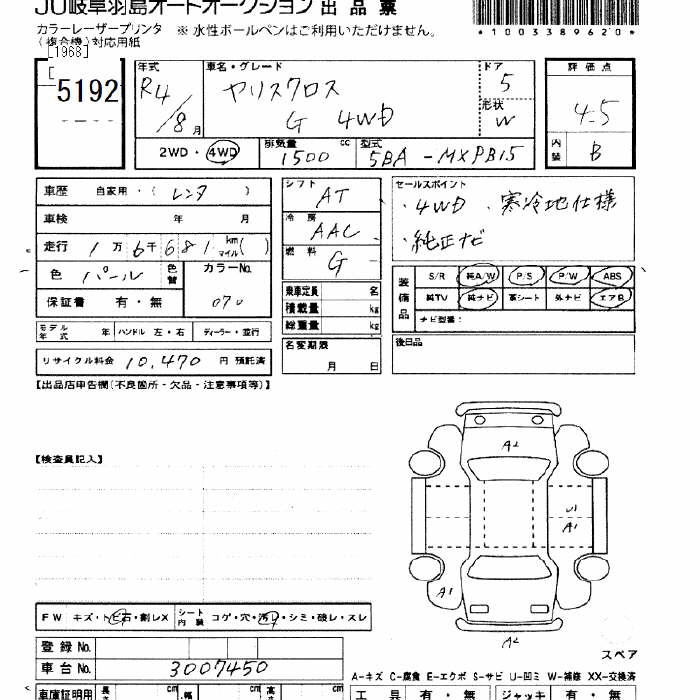 JU岐阜羽島オートオークション 出品票
カラーレーザープリンタ ※ 水性ボールペンはご利用いただけません。
(複合機)対応用紙
*1003389620*
[1968]
5192
年式 車名・グレード ドア 評価点
R4/8月 ヤリスクロス 5 4.5
G 4WD 形状 W
2WD・4WD 排気量 1500 cc 型式 5BA-MXPB15 内装 B
車歴 自家用・(レンタ) シフト AT セールスポイント
・4WD ・寒冷地仕様
・純正ナビ
車検 年 月 冷房 AAC
走行 1万6千681 km マイル( ) 燃料 G
色 パール 色替 カラーNo. 070
保証書 有・無
乗車定員 名
積載量 kg
総重量 kg
装備品 S/R 純A/W P/S P/W ABS
純TV 純ナビ 革シート 外ナビ エアB
ナビ型番:
モデル年式 年 ハンドル 左・右 ディーラー・並行
リサイクル料金 10,470 円 預託済
名変期限 月 日
後日品
【出品店申告欄(不良箇所・欠品・注意事項等)】
【検査員記入】
A2
U1
A1
A1
A2
スペア
FW キズ・トビ石・割レX シート内装 コゲ・穴・汚レ・シミ・破レ・スレ
登録No.
車台No. 3007450
A-キズ C-腐食 E-エクボ S-サビ U-凹ミ W-補修 XX-交換済
車庫証明用 長さ cm 幅 cm 高さ cm 工具 有・無 ジャッキ 有・無